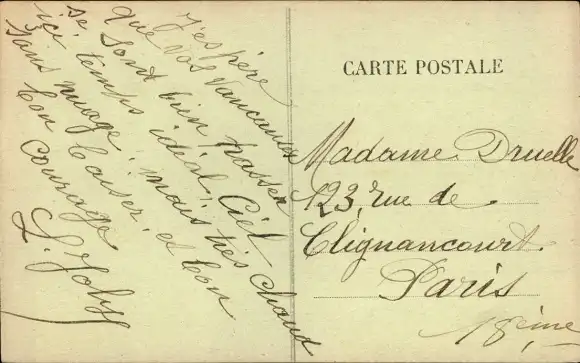 J'espère
que vos vacances
se sont bien passée
ici temps idéal, Ciel
sans nuage, mais très chaud
bon baiser et bon
courage
L. Joly
CARTE POSTALE
Madame Druelle
123, rue de
Clignancourt.
Paris
18ème